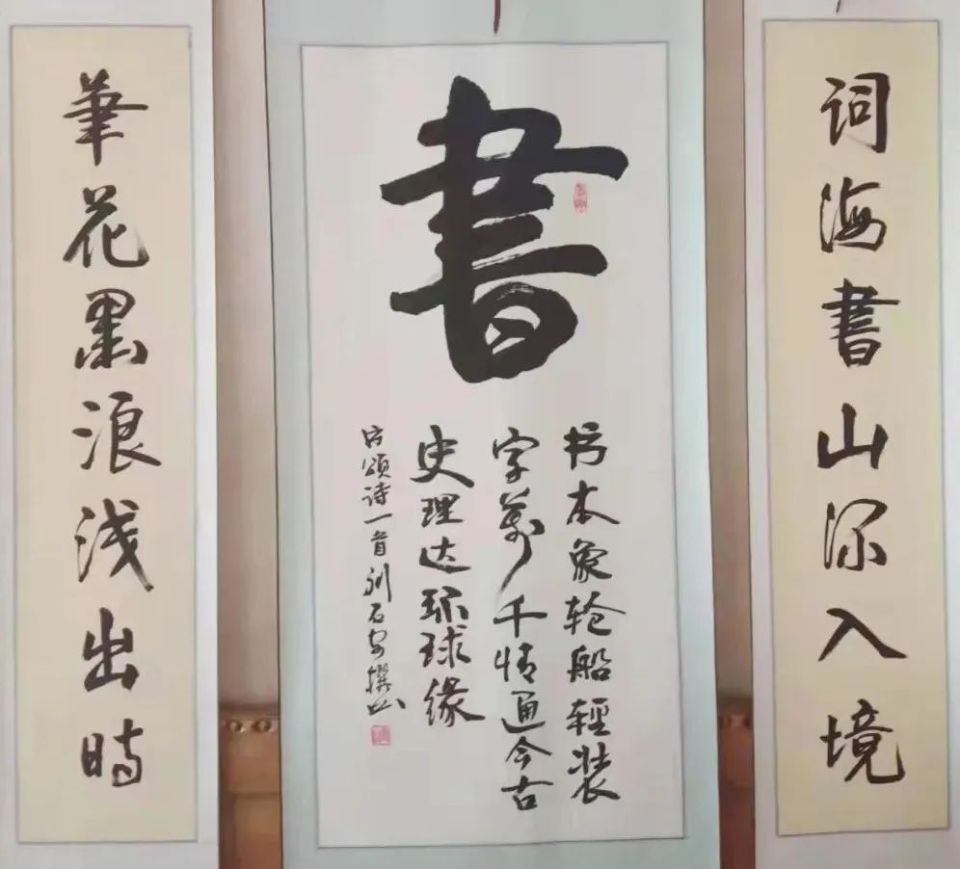 词海書山深入境
書
书本象轮船輕装
字萬千情通今古
史理达环球缘
颂诗一首刘石安撰书
筆花墨浪浅出時